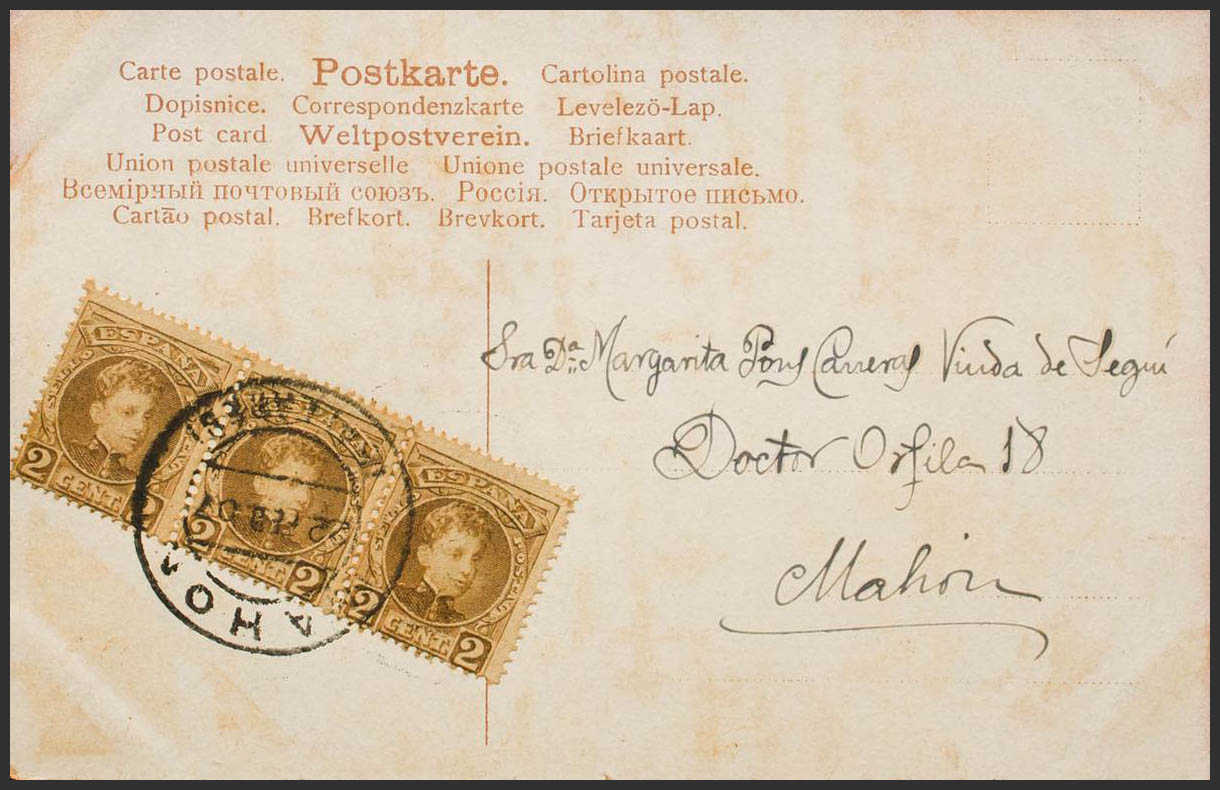 Carte postale. Postkarte. Cartolina postale.
Dopisnice. Correspondenzkarte Levelezö-Lap.
Post card Weltpostverein. Briefkaart.
Union postale universelle Unione postale universale.
Всемірный почтовый союзъ. Россія. Открытое письмо.
Cartão postal. Brefkort. Brevkort. Tarjeta postal.
Sra Dª Margarita Pons Carreras Viuda de Seguí
Doctor Orfila 18
Mahon
ESPAÑA
2 CENT. 2
2 CENT. 2
ESPAÑA
2 CENT. 2
22 07